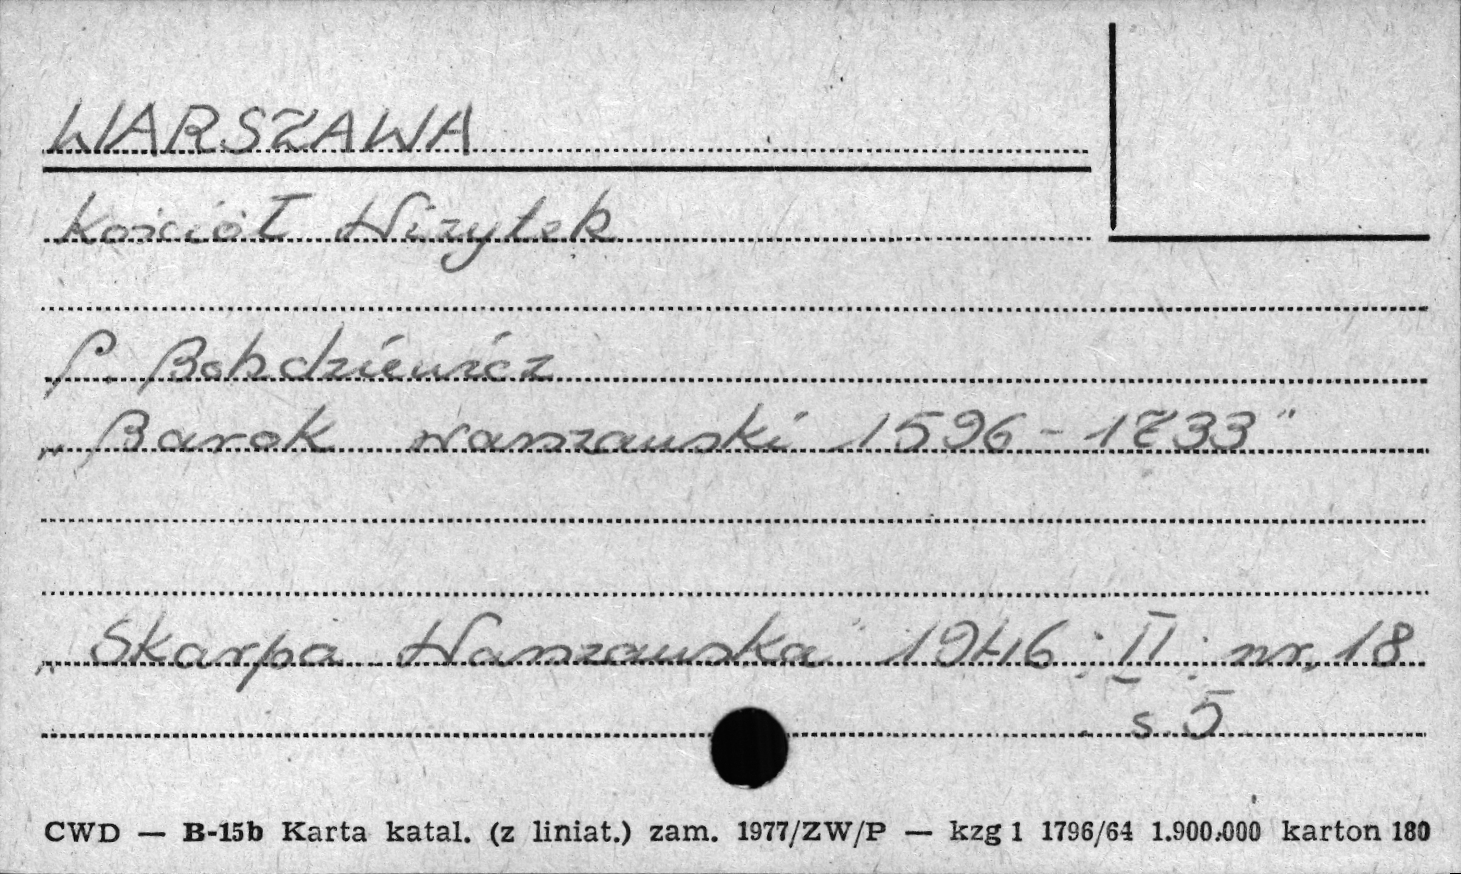 WARSZAWA
Kościół Wizytek
P. Bohdziewicz
„Barok warszawski 1596-1733"
„Skarpa Warszawska" 1946; II; nr. 18
s. 5
CWD — B-15b Karta katal. (z liniat.) zam. 1977/ZW/P — kzg 1 1796/64 1.900.000 karton 180